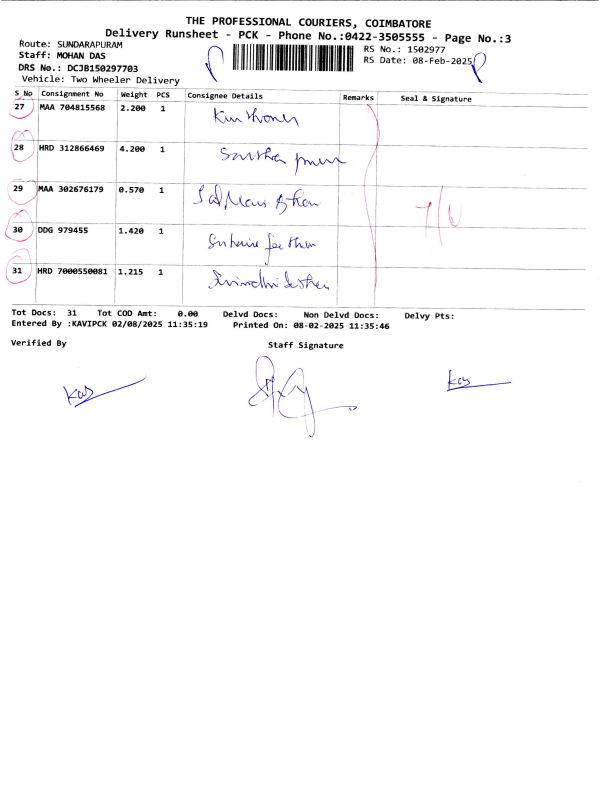 THE PROFESSIONAL COURIERS, COIMBATORE
Delivery Runsheet - PCK - Phone No.:0422-3505555 - Page No.:3
Route: SUNDARAPURAM
RS No.: 1502977
Staff: MOHAN DAS
RS Date: 08-Feb-2025
DRS No.: DCJB150297703
Vehicle: Two Wheeler Delivery
S No Consignment No Weight PCS Consignee Details Remarks Seal & Signature
27 MAA 704815568 2.200 1
28 HRD 312866469 4.200 1
29 MAA 302676179 0.570 1
30 DDG 979455 1.420 1
31 HRD 7000550081 1.215 1
Tot Docs: 31 Tot COD Amt: 0.00 Delvd Docs: Non Delvd Docs: Delvy Pts:
Entered By :KAVIPCK 02/08/2025 11:35:19 Printed On: 08-02-2025 11:35:46
Verified By Staff Signature